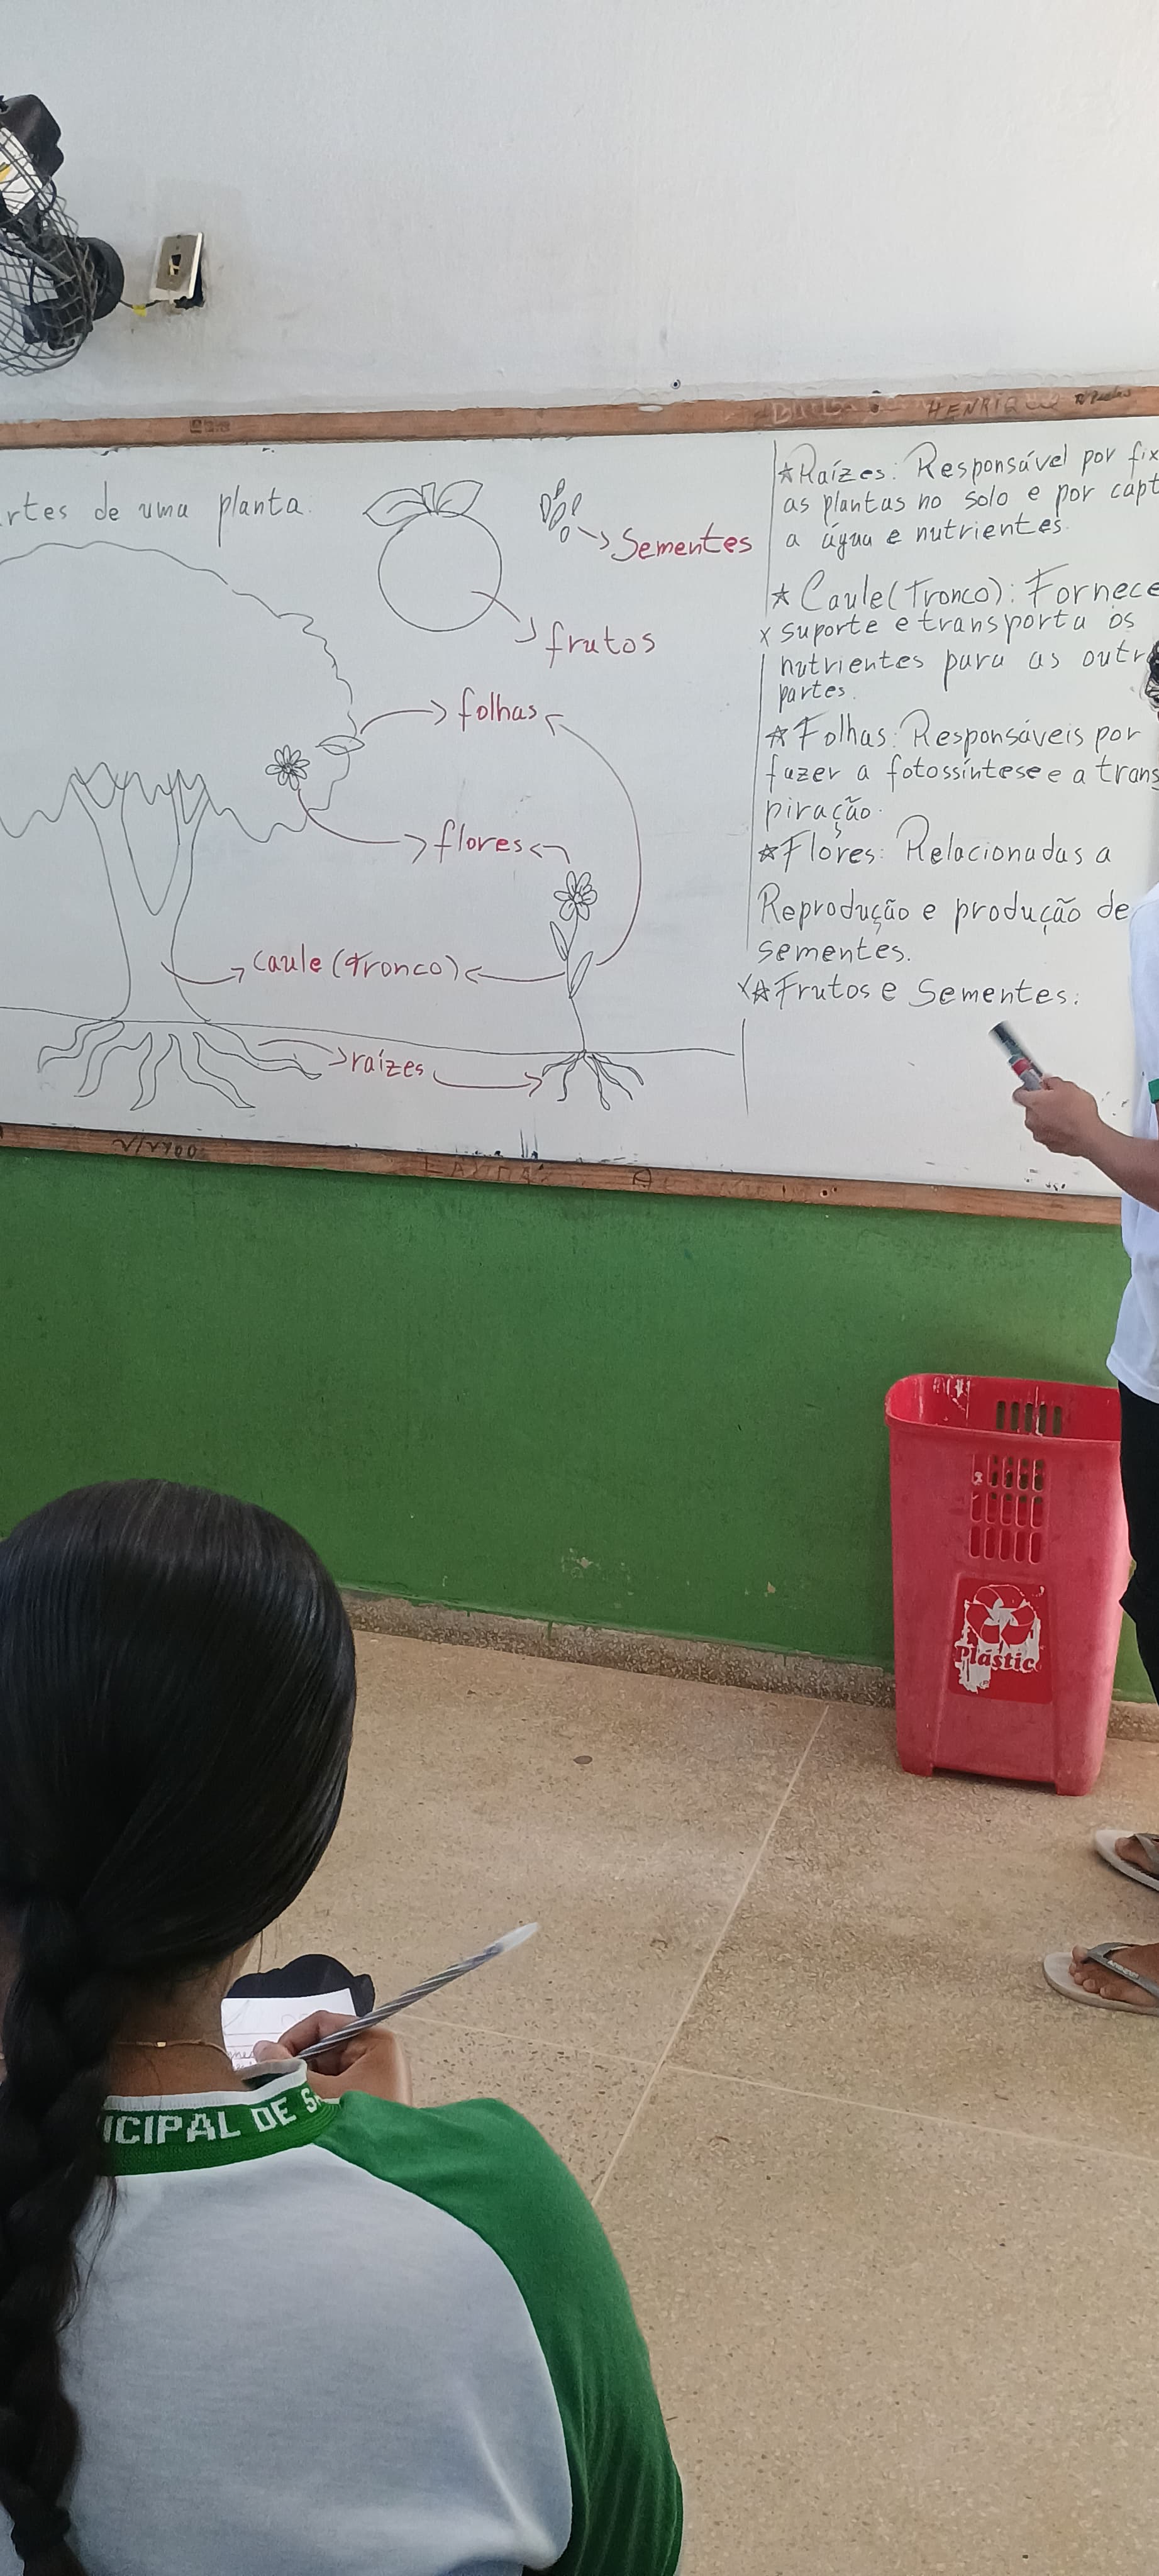 HENRIQUE
rtes de uma planta:
Sementes
frutos
folhas
flores
caule (Tronco)
raízes
Raízes: Responsável por fix
as plantas no solo e por capt
a água e nutrientes.
Caule (Tronco): Fornece
x suporte e transporta os
nutrientes para as outr
partes.
Folhas: Responsáveis por
fazer a fotossíntese e a trans
piração.
Flores: Relacionadas a
Reprodução e produção de
sementes.
x Frutos e Sementes:
Plástico
ICIPAL DE S